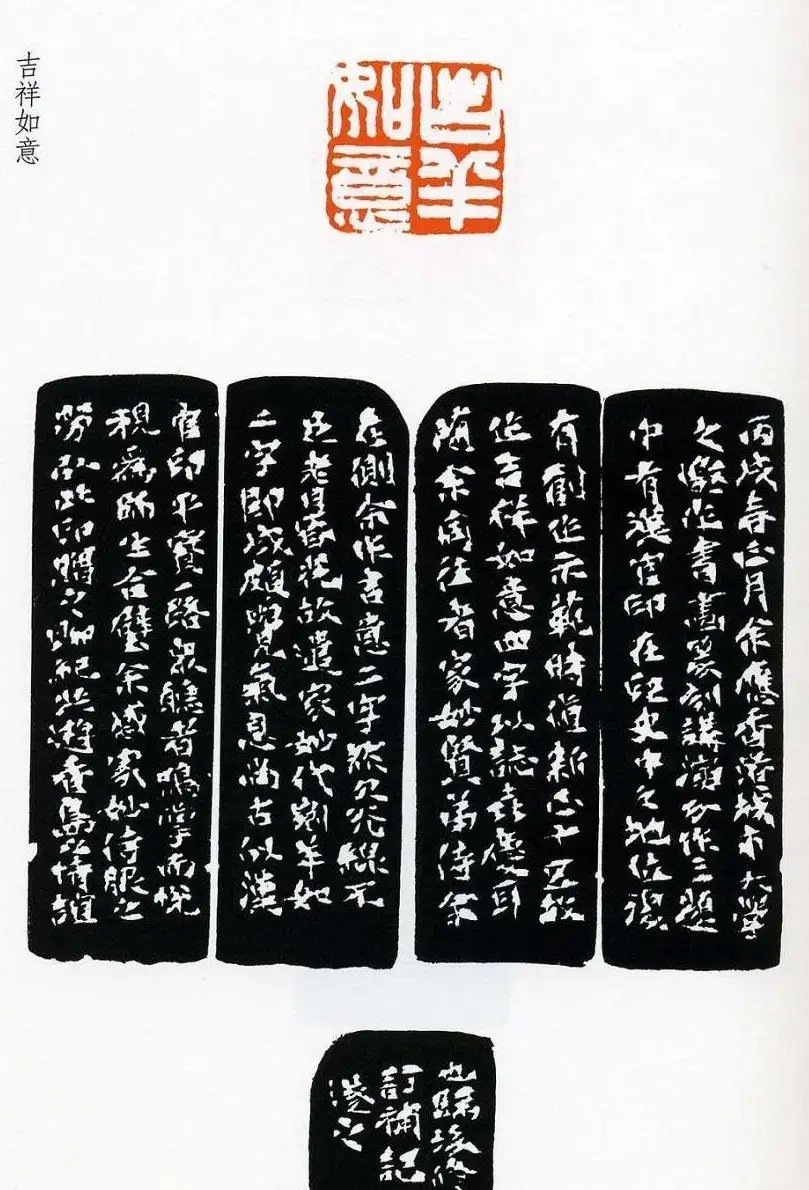 吉祥如意
吉羊
如意
丙戌春正月余應香港城市大學
之邀作書畫篆刻講演分作三題
中有漢官印在印史中之地位後
有創作示範時值新正十五故
作吉祥如意四字以誌喜慶耳
隨余同往者家妙賢弟侍余
在側余作吉意二字然光線不
足老目昏花故遣家妙代劉羊如
二字即成頗覺氣息尚古似漢
官印平實一路眾聽者鳴掌而悅
視為師生合璧余感家妙侍服之
勞以此印贈之聊紀此遊香島之情誼
也歸後
訂補記